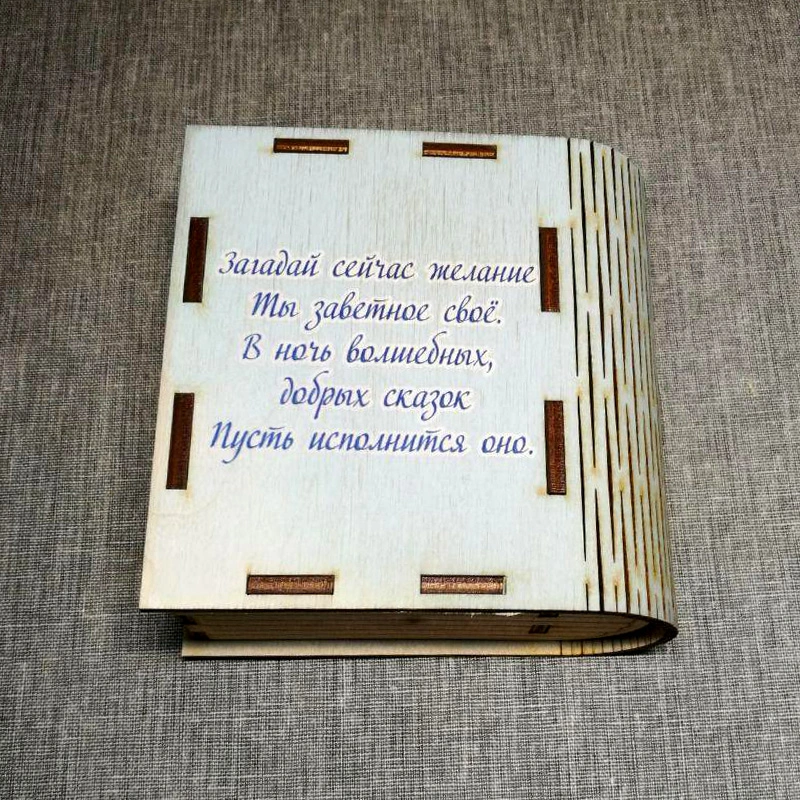 Загадай сейчас желание
Ты заветное своё.
В ночь волшебных,
добрых сказок
Пусть исполнится оно.